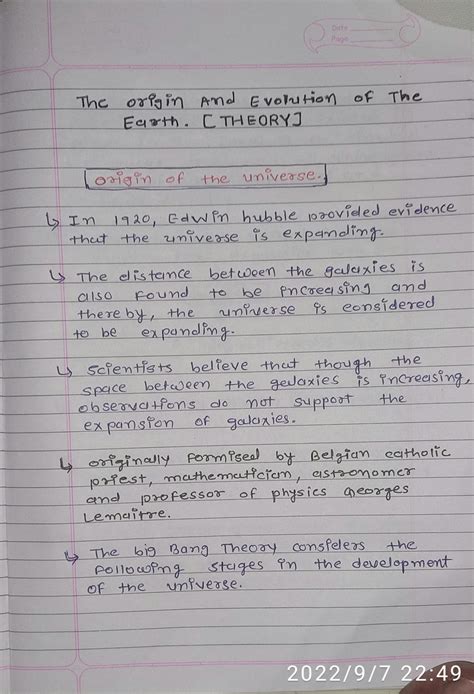 Date
Page
The origin And Evolution of The
Earth. [THEORY]
origin of the universe.
↳ In 1920, Edwin hubble provided evidence
that the universe is expanding.
↳ The distance between the galaxies is
also found to be increasing and
thereby, the universe is considered
to be expanding.
↳ scientists believe that though the
space between the galaxies is increasing,
observations do not support the
expansion of galaxies.
↳ originally formised by Belgian catholic
priest, mathematician, astronomer
and professor of physics georges
Lemaitre.
↳ The big Bang Theory considers the
following stages in the development
of the universe.
2022/9/7 22:49